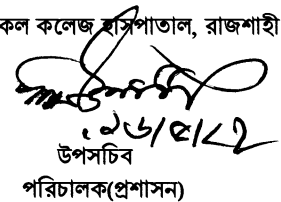 কল কলেজ হাসপাতাল, রাজশাহী
উপসচিব
পরিচালক(প্রশাসন)